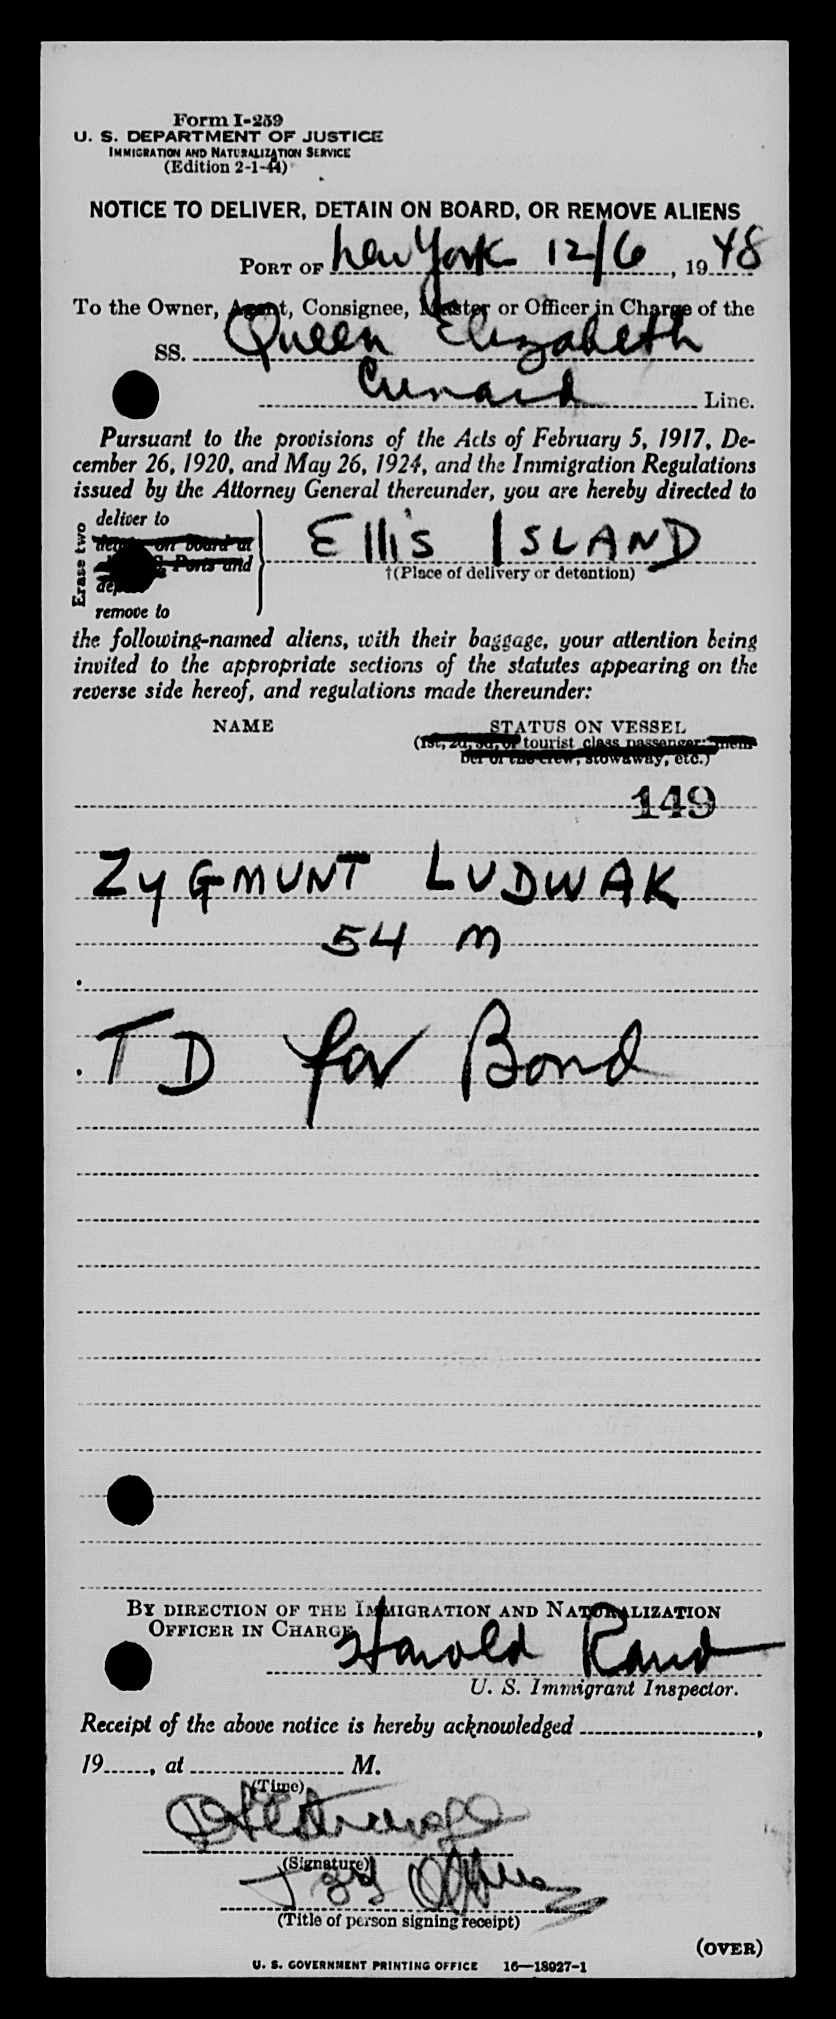 Form I-259
U. S. DEPARTMENT OF JUSTICE
IMMIGRATION AND NATURALIZATION SERVICE
(Edition 2-1-44)
NOTICE TO DELIVER, DETAIN ON BOARD, OR REMOVE ALIENS
PORT OF New York 12/6, 1948
To the Owner, Agent, Consignee, Master or Officer in Charge of the
SS. Queen Elizabeth
Cunard Line.
Pursuant to the provisions of the Acts of February 5, 1917, De-
cember 26, 1920, and May 26, 1924, and the Immigration Regulations
issued by the Attorney General thereunder, you are hereby directed to
Erase two
deliver to
on board at
Ports and
remove to
Ellis ISLAND
†(Place of delivery or detention)
the following-named aliens, with their baggage, your attention being
invited to the appropriate sections of the statutes appearing on the
reverse side hereof, and regulations made thereunder:
NAME STATUS ON VESSEL
(1st, 2d, 3d, or tourist class passenger; mem-
ber of the crew, stowaway, etc.)
149
ZYGMUNT LUDWAK
54 M
TD for Bond
BY DIRECTION OF THE IMMIGRATION AND NATURALIZATION
OFFICER IN CHARGE
Harold Rand
U. S. Immigrant Inspector.
Receipt of the above notice is hereby acknowledged ,
19 , at M.
(Time)
(Signature)
(Title of person signing receipt)
(OVER)
U. S. GOVERNMENT PRINTING OFFICE 16—18927-1